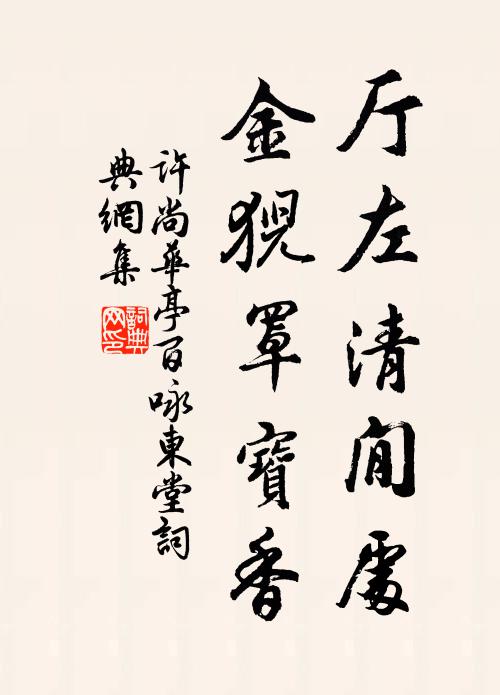 厅左清閒處
金猊罩寶香
許尚華亭百咏東堂詞
典網集
詞典网印